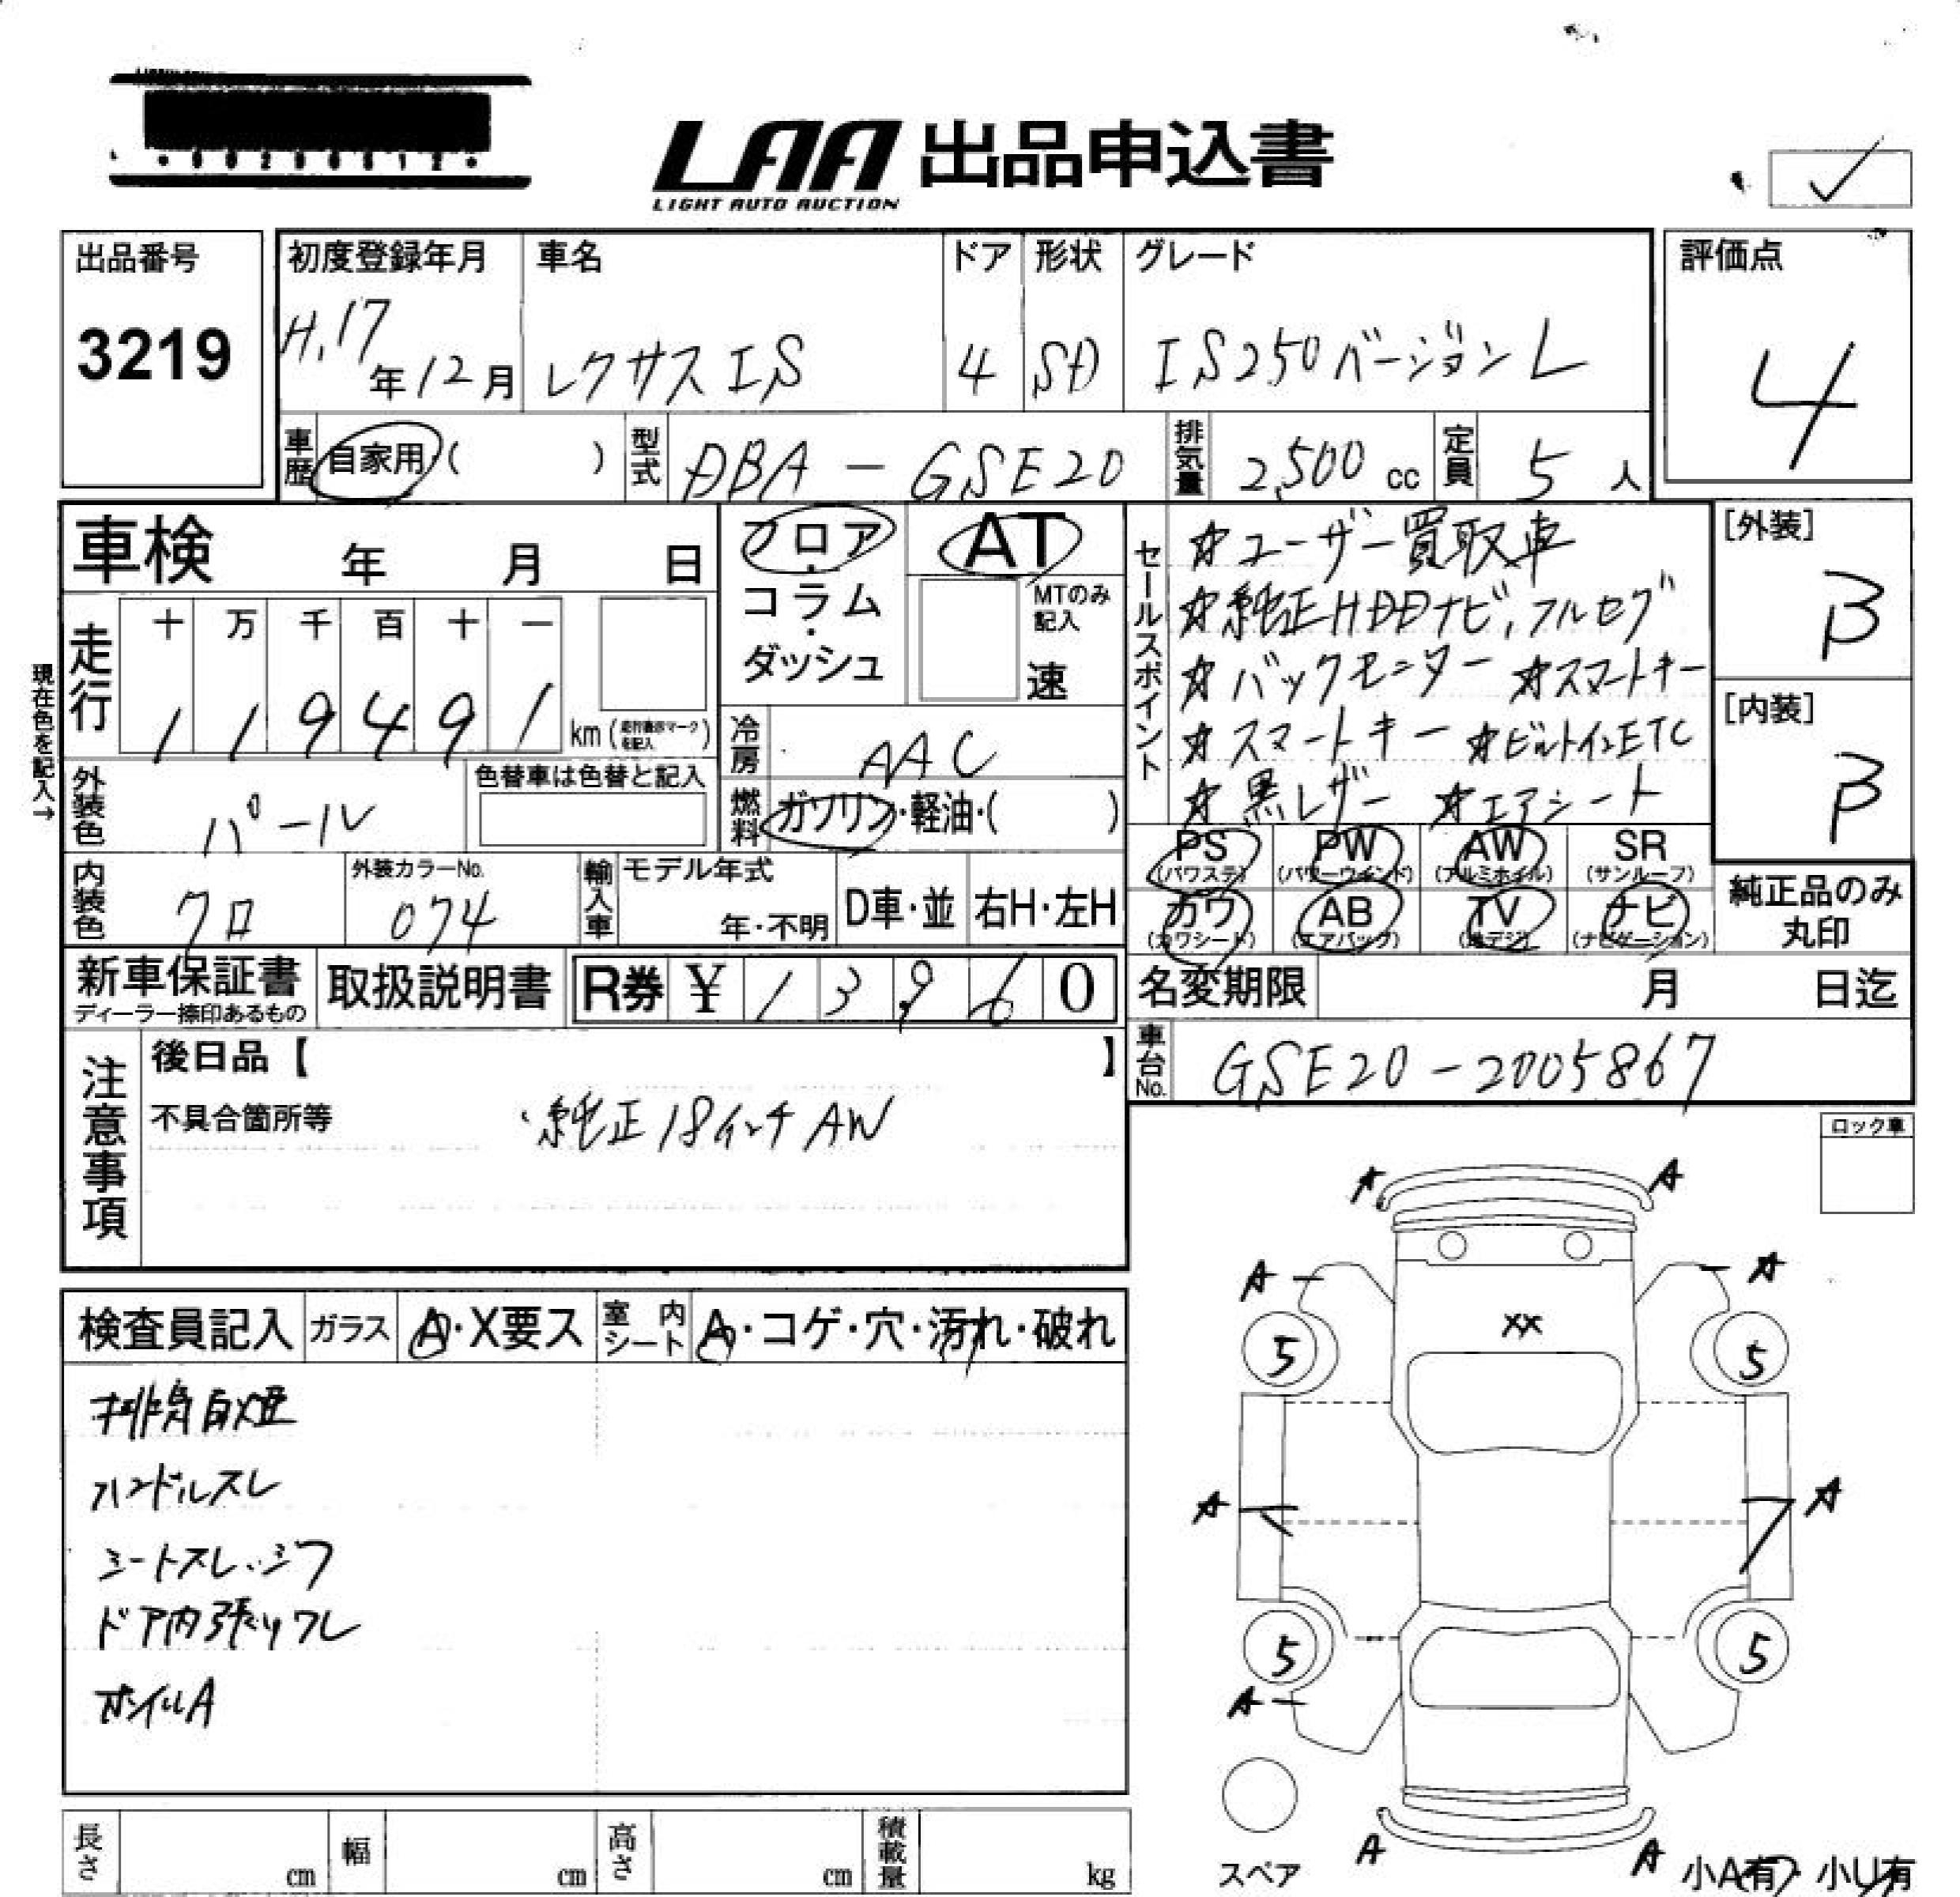 LAA 出品申込書
LIGHT AUTO AUCTION
出品番号
3219
初度登録年月
H.17年12月
車名
レクサスIS
ドア
4
形状
SD
グレード
IS250バージョンL
評価点
4
車歴
自家用・( )
型式
DBA-GSE20
排気量
2,500 cc
定員
5人
車検 年 月 日
フロア・コラム・ダッシュ
AT
MTのみ記入
速
セールスポイント
☆ユーザー買取車
☆純正HDDナビ,フルセグ
☆バックモニター ☆スマートキー
☆スマートキー ☆ビルトインETC
☆黒レザー ☆エアシート
[外装]
B
[内装]
B
現在色を記入→
走行
十 万 千 百 十 一
1 1 9 4 9 1 km
冷房
AAC
外装色
パール
色替車は色替と記入
燃料
ガソリン・軽油・( )
内装色
クロ
外装カラーNo.
074
輸入車
モデル年式
年・不明
D車・並
右H・左H
PS (パワステ) PW (パワーウインド) AW (アルミホイル) SR (サンルーフ)
カワ (カワシート) AB (エアバッグ) TV (地デジ) ナビ (ナビゲーション)
純正品のみ丸印
新車保証書
ディーラー捺印あるもの
取扱説明書
R券 ¥ 1 3, 9 6 0
名変期限 月 日迄
車台No.
GSE20-2005867
注意事項
後日品【 】
不具合箇所等
・純正18インチAW
ロック車
検査員記入
ガラス
A・X要ス
室内シート
A・コゲ・穴・汚れ・破れ
排気白煙
ハンドルスレ
シートスレ・シワ
ドア内張りスレ
ホイルA
A A
A A
XX
5 5
A A
5 5
A
A A
スペア
小A有・小U有
長さ cm
幅 cm
高さ cm
積載量 kg